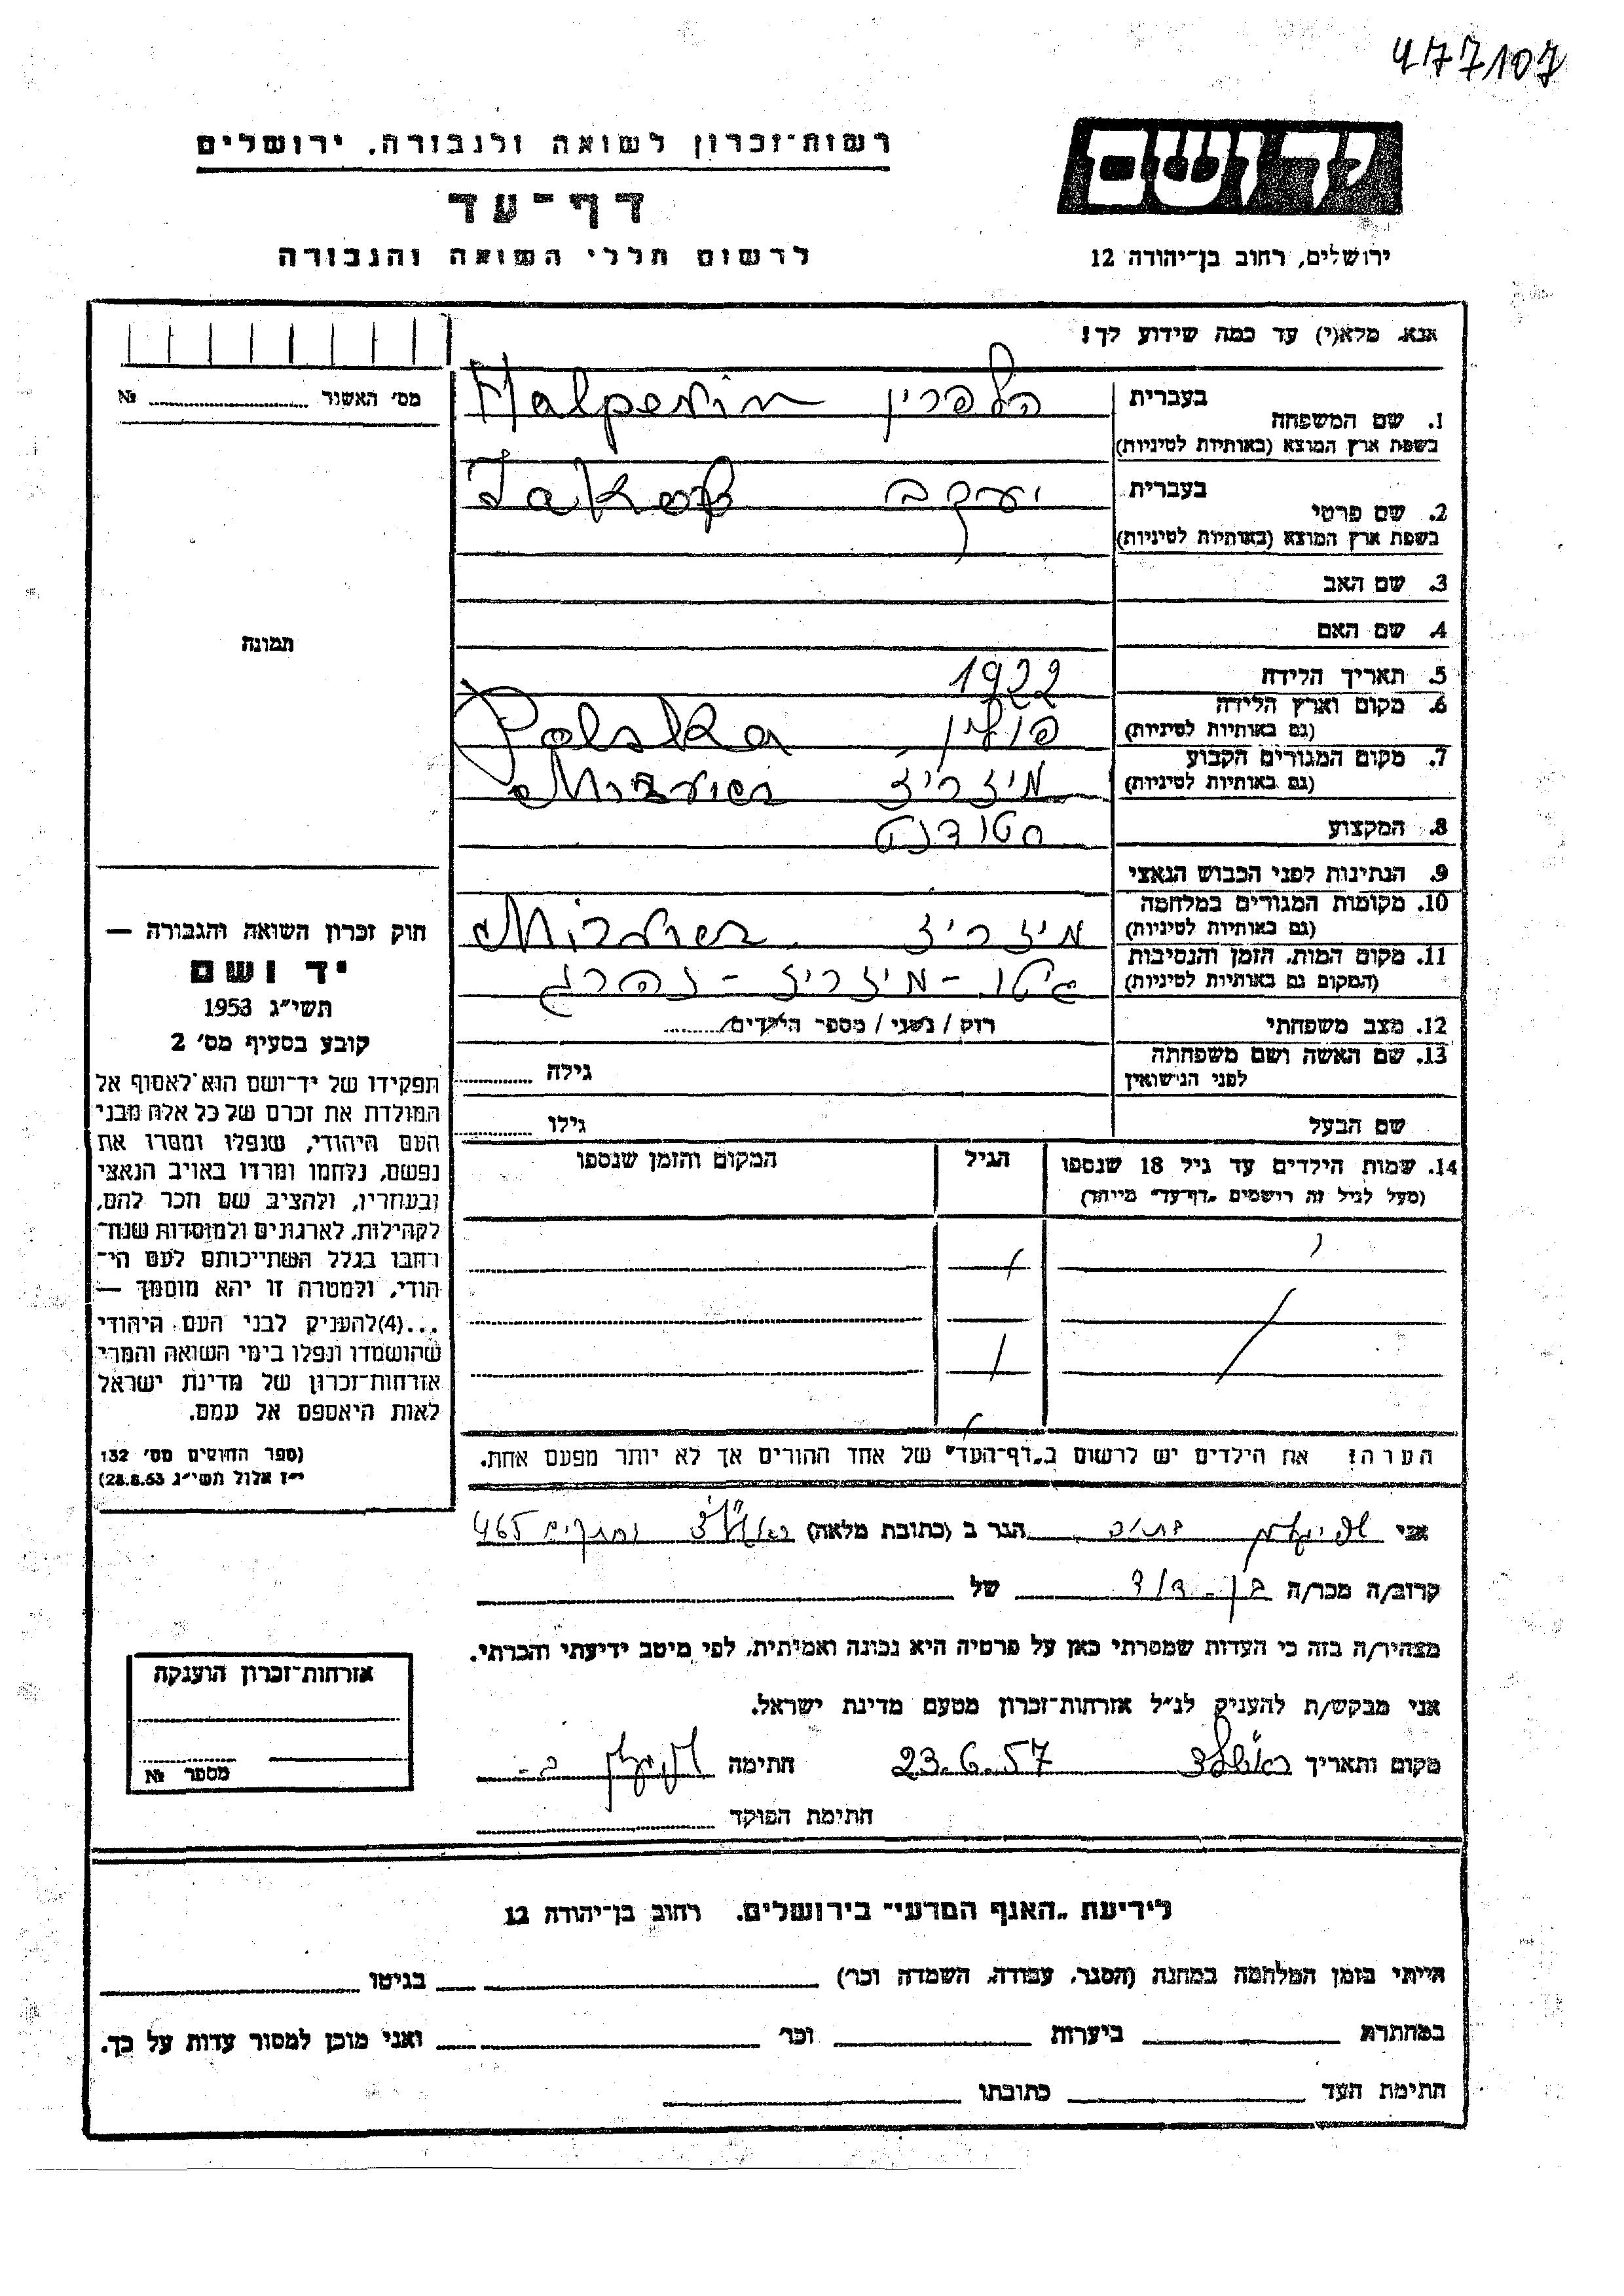 477107
יד ושם
רשות־זכרון לשואה ולגבורה, ירושלים
דף־עד
לרשום חללי השואה והגבורה
ירושלים, רחוב בן־יהודה 12
אנא, מלא(י) עד כמה שידוע לך!
מס' האשור № 
בעברית הלפרין Halperin
1. שם המשפחה
בשפת ארץ המוצא (באותיות לטיניות)
בעברית יעקב Jakob
2. שם פרטי
בשפת ארץ המוצא (באותיות לטיניות)
3. שם האב
4. שם האם
תמונה
5. תאריך הלידה 1922
6. מקום וארץ הלידה
(גם באותיות לטיניות) פולין, Polska
7. מקום המגורים הקבוע
(גם באותיות לטיניות) מיזריץ
8. המקצוע סטודנט
9. הנתינות לפני הכבוש הנאצי
10. מקומות המגורים במלחמה
(גם באותיות לטיניות) מיזריץ
11. מקום המות, הזמן והנסיבות
(המקום גם באותיות לטיניות) גיטו - מיזריץ - נהרג
12. מצב משפחתי רוק / נשוי / מספר הילדים
13. שם האשה ושם משפחתה
לפני הנישואין גילה
שם הבעל גילו
14. שמות הילדים עד גיל 18 שנספו הגיל המקום והזמן שנספו
(מעל לגיל זה רושמים „דף־עד" מיוחד)
הערה! את הילדים יש לרשום ב„דף־העד" של אחד ההורים אך לא יותר מפעם אחת.
חוק זכרון השואה והגבורה —
יד ושם
תשי"ג 1953
קובע בסעיף מס' 2
תפקידו של יד־ושם הוא לאסוף אל
המולדת את זכרם של כל אלה מבני
העם היהודי, שנפלו ומסרו את
נפשם, נלחמו ומרדו באויב הנאצי
ובעוזריו, ולהציב שם וזכר להם,
לקהילות, לארגונים ולמוסדות שנח־
רבו בגלל השתייכותם לעם הי־
הודי, ולמטרה זו יהא מוסמך —
...(4)להעניק לבני העם היהודי
שהושמדו ונפלו בימי השואה והמרי
אזרחות־זכרון של מדינת ישראל
לאות היאספם אל עמם.
(ספר החוקים מס' 132
י"ז אלול תשי"ג 28.8.53)
אני הגר ב (כתובת מלאה) ראשל"צ 465
קרוב/ה מכר/ה בן-דוד של
מצהיר/ה בזה כי העדות שמסרתי כאן על פרטיה היא נכונה ואמיתית, לפי מיטב ידיעתי והכרתי.
אני מבקש/ת להעניק לנ"ל אזרחות־זכרון מטעם מדינת ישראל.
מקום ותאריך ראשל"צ 23.6.57 חתימה
חתימת הפוקד
אזרחות־זכרון הוענקה
מספר №
לידיעת „האגף המדעי" בירושלים, רחוב בן־יהודה 12
הייתי בזמן המלחמה במחנה (הסגר, עבודה, השמדה וכו') בגיטו
במחתרת ביערות וכו' ואני מוכן למסור עדות על כך.
חתימת העד כתובתו